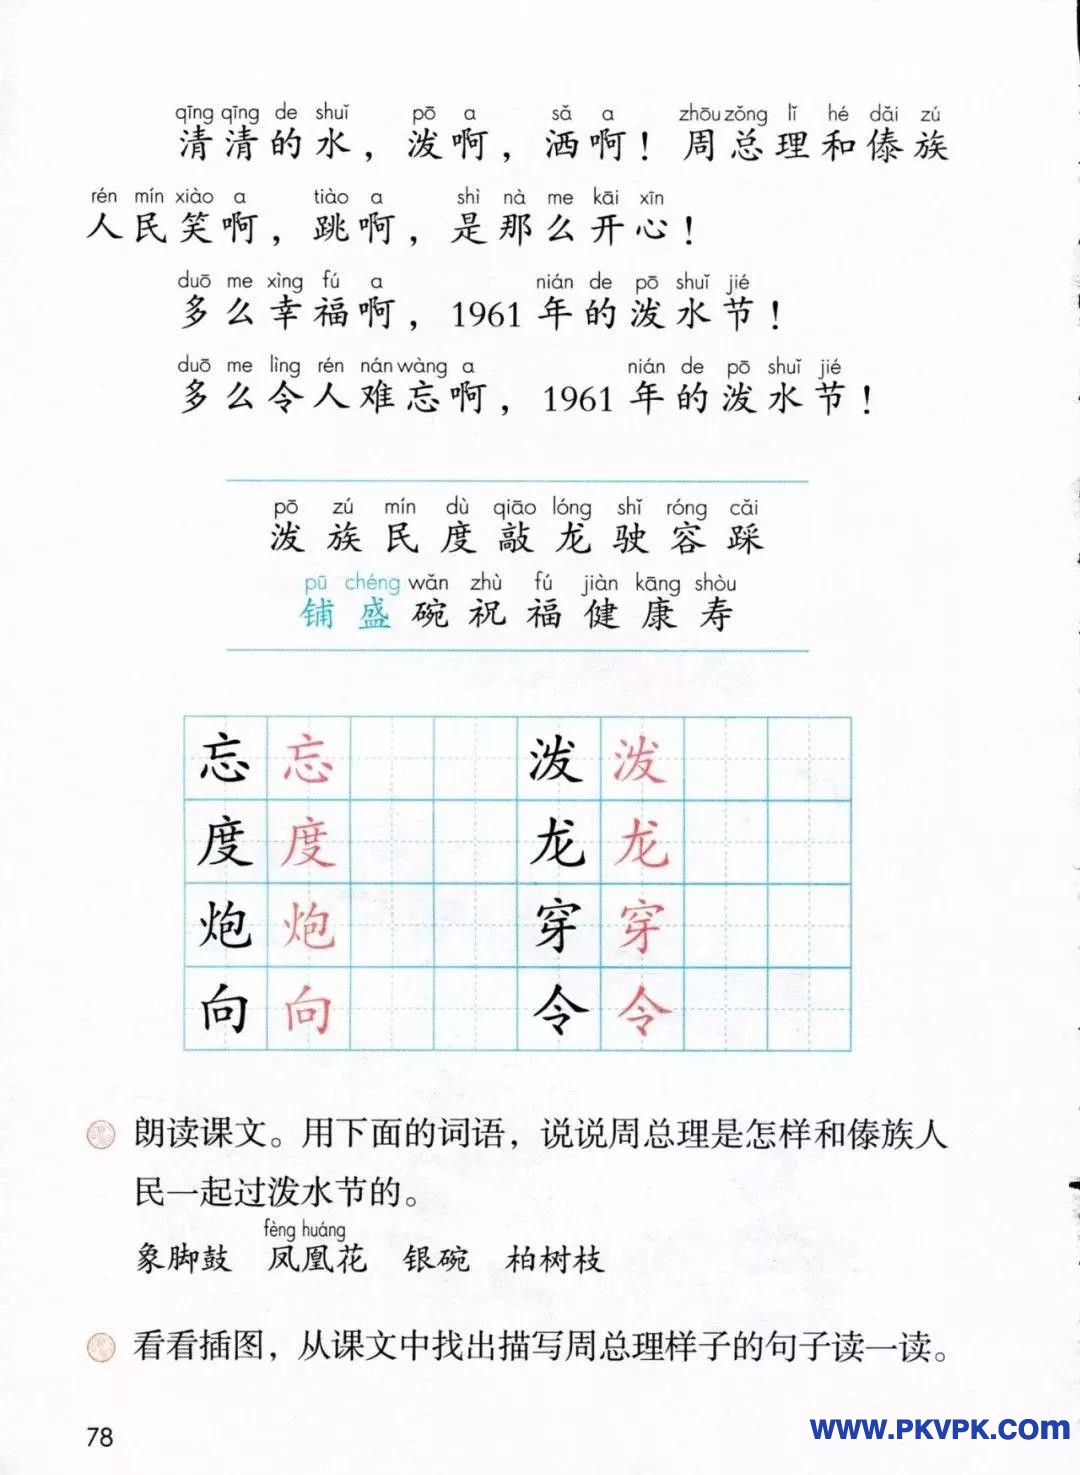 qīng qīng de shuǐ pō a sǎ a zhōu zǒng lǐ hé dǎi zú
清清的水，泼啊，洒啊！周总理和傣族
rén mín xiào a tiào a shì nà me kāi xīn
人民笑啊，跳啊，是那么开心！
duō me xìng fú a nián de pō shuǐ jié
多么幸福啊，1961年的泼水节！
duō me lìng rén nán wàng a nián de pō shuǐ jié
多么令人难忘啊，1961年的泼水节！
pō zú mín dù qiāo lóng shǐ róng cǎi
泼 族 民 度 敲 龙 驶 容 踩
pū chéng wǎn zhù fú jiàn kāng shòu
铺 盛 碗 祝 福 健 康 寿
忘 忘 泼 泼
度 度 龙 龙
炮 炮 穿 穿
向 向 令 令
朗读课文。用下面的词语，说说周总理是怎样和傣族人
民一起过泼水节的。
fèng huáng
象脚鼓 凤凰花 银碗 柏树枝
看看插图，从课文中找出描写周总理样子的句子读一读。
78
www.PKVPK.com